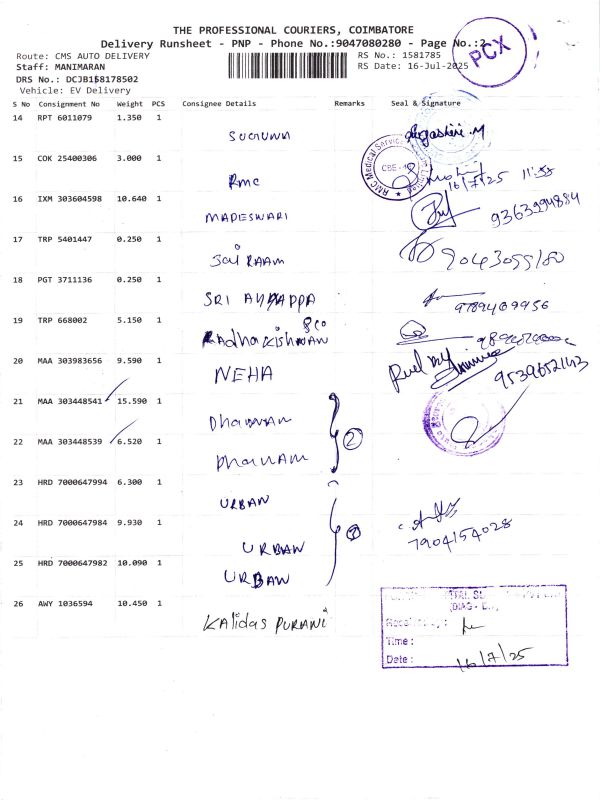 THE PROFESSIONAL COURIERS, COIMBATORE
Delivery Runsheet - PNP - Phone No.:9047080280 - Page No.:2
PCX
Route: CMS AUTO DELIVERY
RS No.: 1581785
Staff: MANIMARAN
RS Date: 16-Jul-2025
DRS No.: DCJB158178502
Vehicle: EV Delivery
S No Consignment No Weight PCS Consignee Details Remarks Seal & Signature
14 RPT 6011079 1.350 1
15 COK 25400306 3.000 1
RMC Medical
CBE
Rmc
16/7/25 11:58
16 IXM 303604598 10.640 1
MADESWARI
9363994884
17 TRP 5401447 0.250 1
Jai RAAM
18 PGT 3711136 0.250 1
SRI AYYAPPA
9789409956
19 TRP 668002 5.150 1
RadhaKishNAN
20 MAA 303983656 9.590 1
NEHA
9539652143
21 MAA 303448541 15.590 1
Dhanam
22 MAA 303448539 6.520 1
2
Dhanam
23 HRD 7000647994 6.300 1
URBAN
24 HRD 7000647984 9.930 1
7904154028
URBAN
25 HRD 7000647982 10.090 1
URBAN
26 AWY 1036594 10.450 1
Kalidas PURANI
Time :
Date : 16/7/25